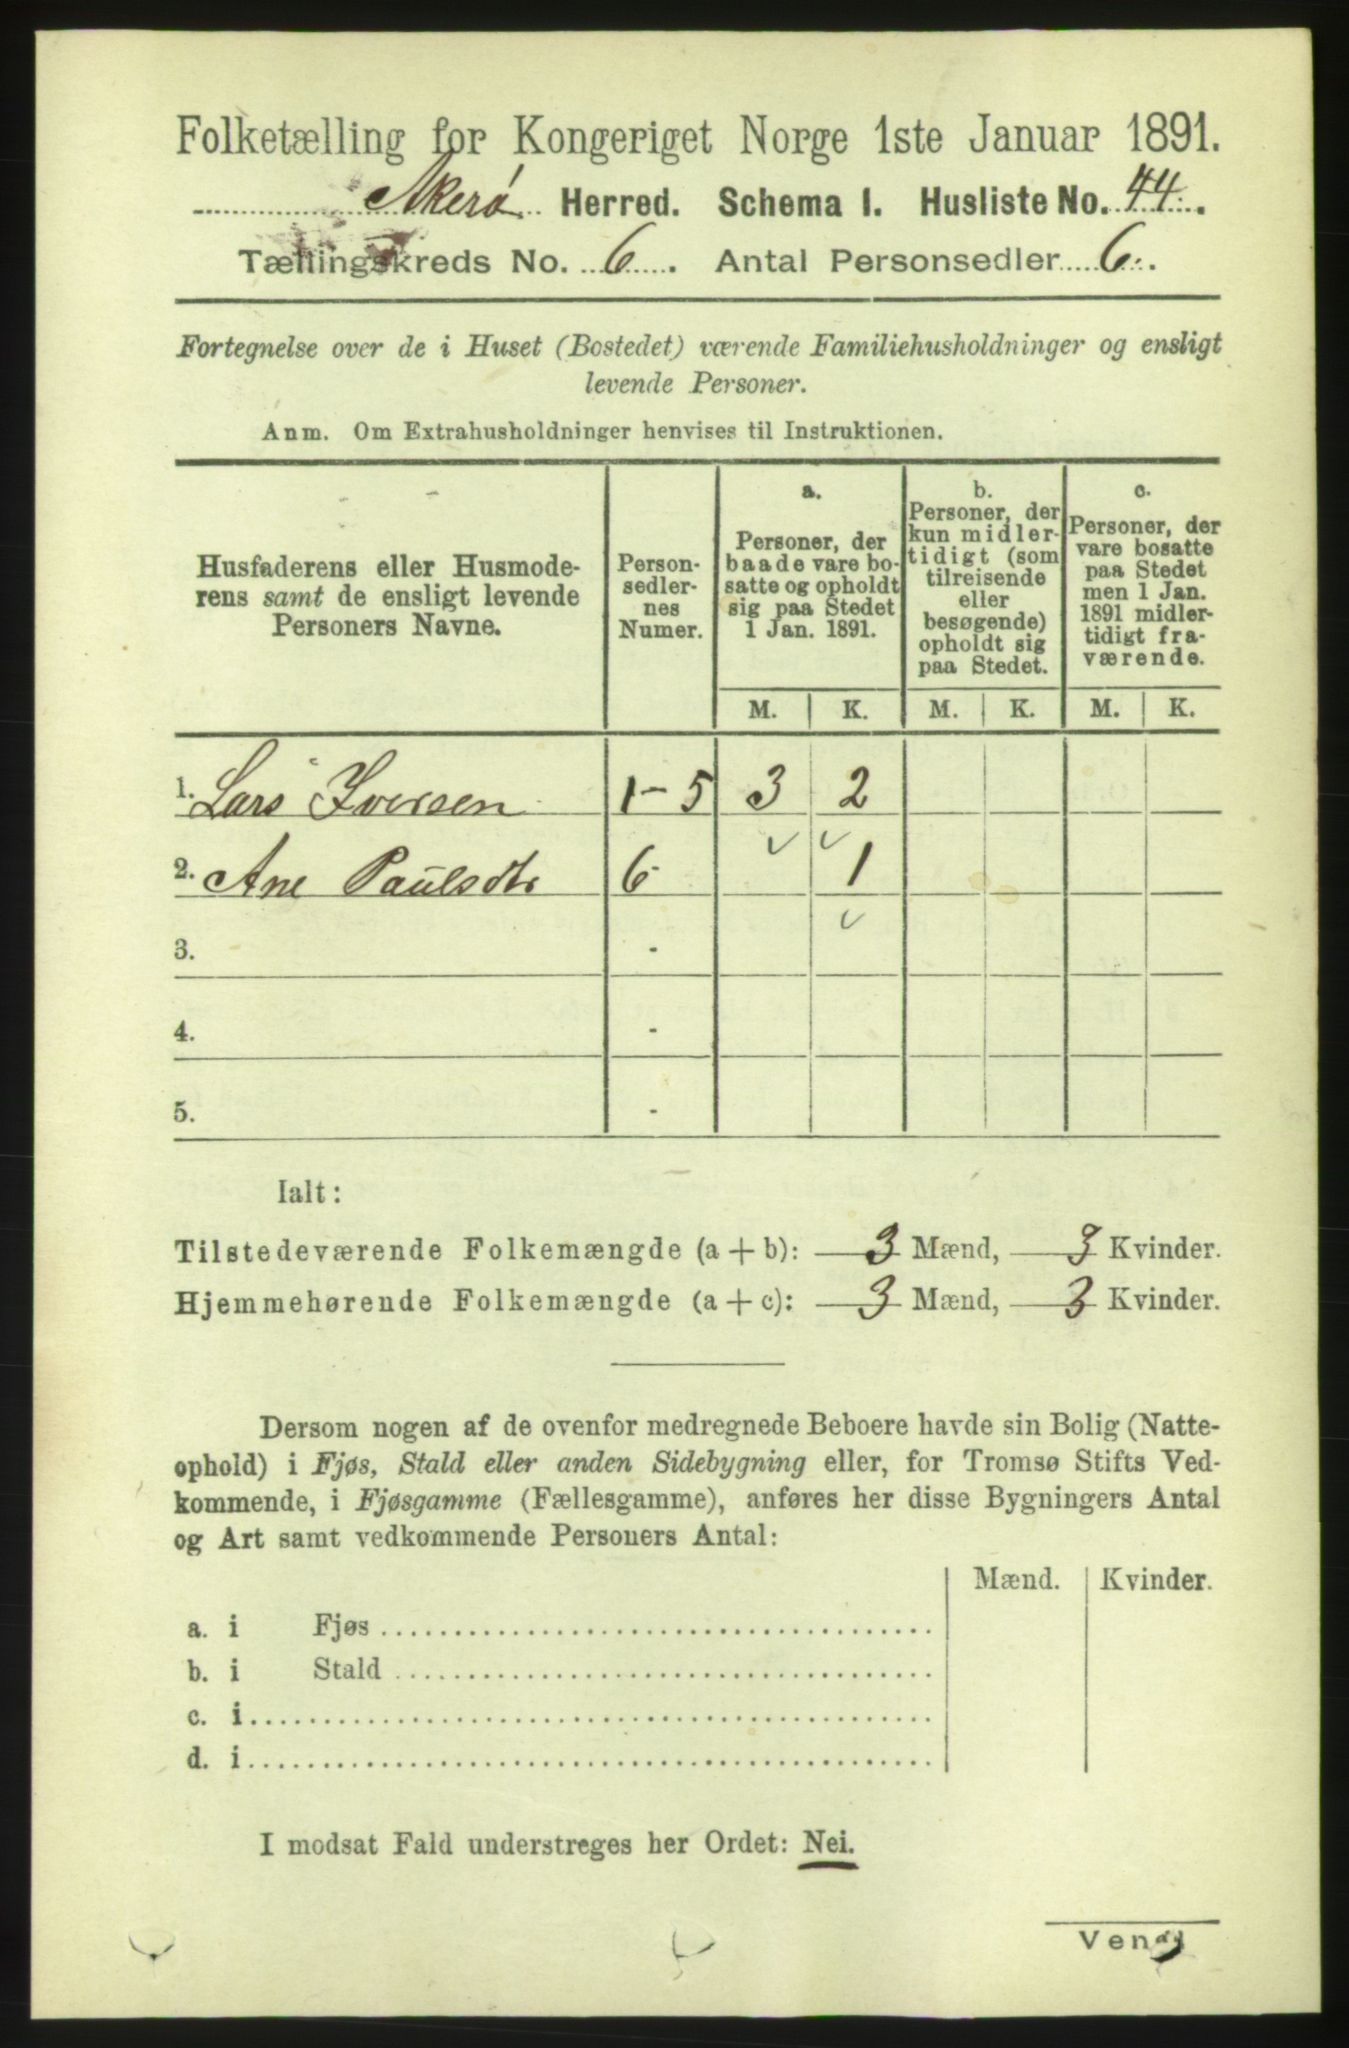 Folketælling for Kongeriget Norge 1ste Januar 1891.
Akerø Herred. Schema I. Husliste No. 44.
Tællingskreds No. 6. Antal Personsedler 6.
Fortegnelse over de i Huset (Bostedet) værende Familiehusholdninger og ensligt
levende Personer.
Anm. Om Extrahusholdninger henvises til Instruktionen.
Husfaderens eller Husmode-
rens samt de ensligt levende
Personers Navne.
Person-
sedler-
nes
Numer.
a.
Personer, der
baade vare bo-
satte og opholdt
sig paa Stedet
1 Jan. 1891.
b.
Personer, der
kun midler-
tidigt (som
tilreisende
eller
besøgende)
opholdt sig
paa Stedet.
c.
Personer, der
vare bosatte
paa Stedet
men 1 Jan.
1891 midler-
tidigt fra-
værende.
M. K. M. K. M. K.
1. Lars Iversen 1-5 3 2
2. Ane Paulsdtr 6 1
3. -
4. -
5. -
Ialt:
Tilstedeværende Folkemængde (a + b): 3 Mænd, 3 Kvinder.
Hjemmehørende Folkemængde (a + c): 3 Mænd, 3 Kvinder.
Dersom nogen af de ovenfor medregnede Beboere havde sin Bolig (Natte-
ophold) i Fjøs, Stald eller anden Sidebygning eller, for Tromsø Stifts Ved-
kommende, i Fjøsgamme (Fællesgamme), anføres her disse Bygningers Antal
og Art samt vedkommende Personers Antal:
Mænd. Kvinder.
a. i Fjøs
b. i Stald
c. i
d. i
I modsat Fald understreges her Ordet: Nei.
Vend!